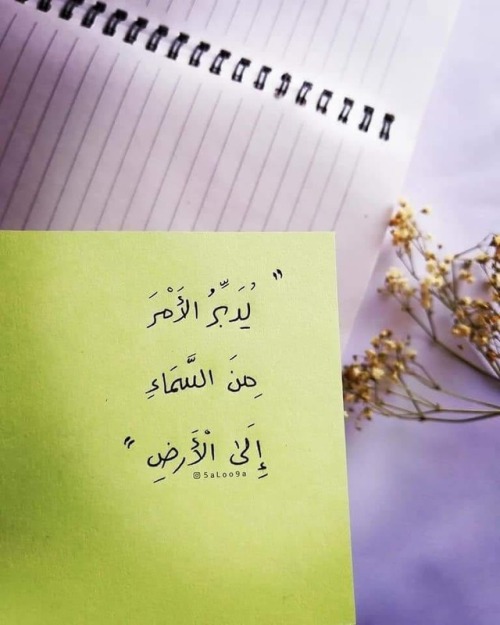 " يُدَبِّرُ الأَمْرَ
مِنَ السَّمَاءِ
إِلَىٰ الْأَرضِ "
5aLoo9a